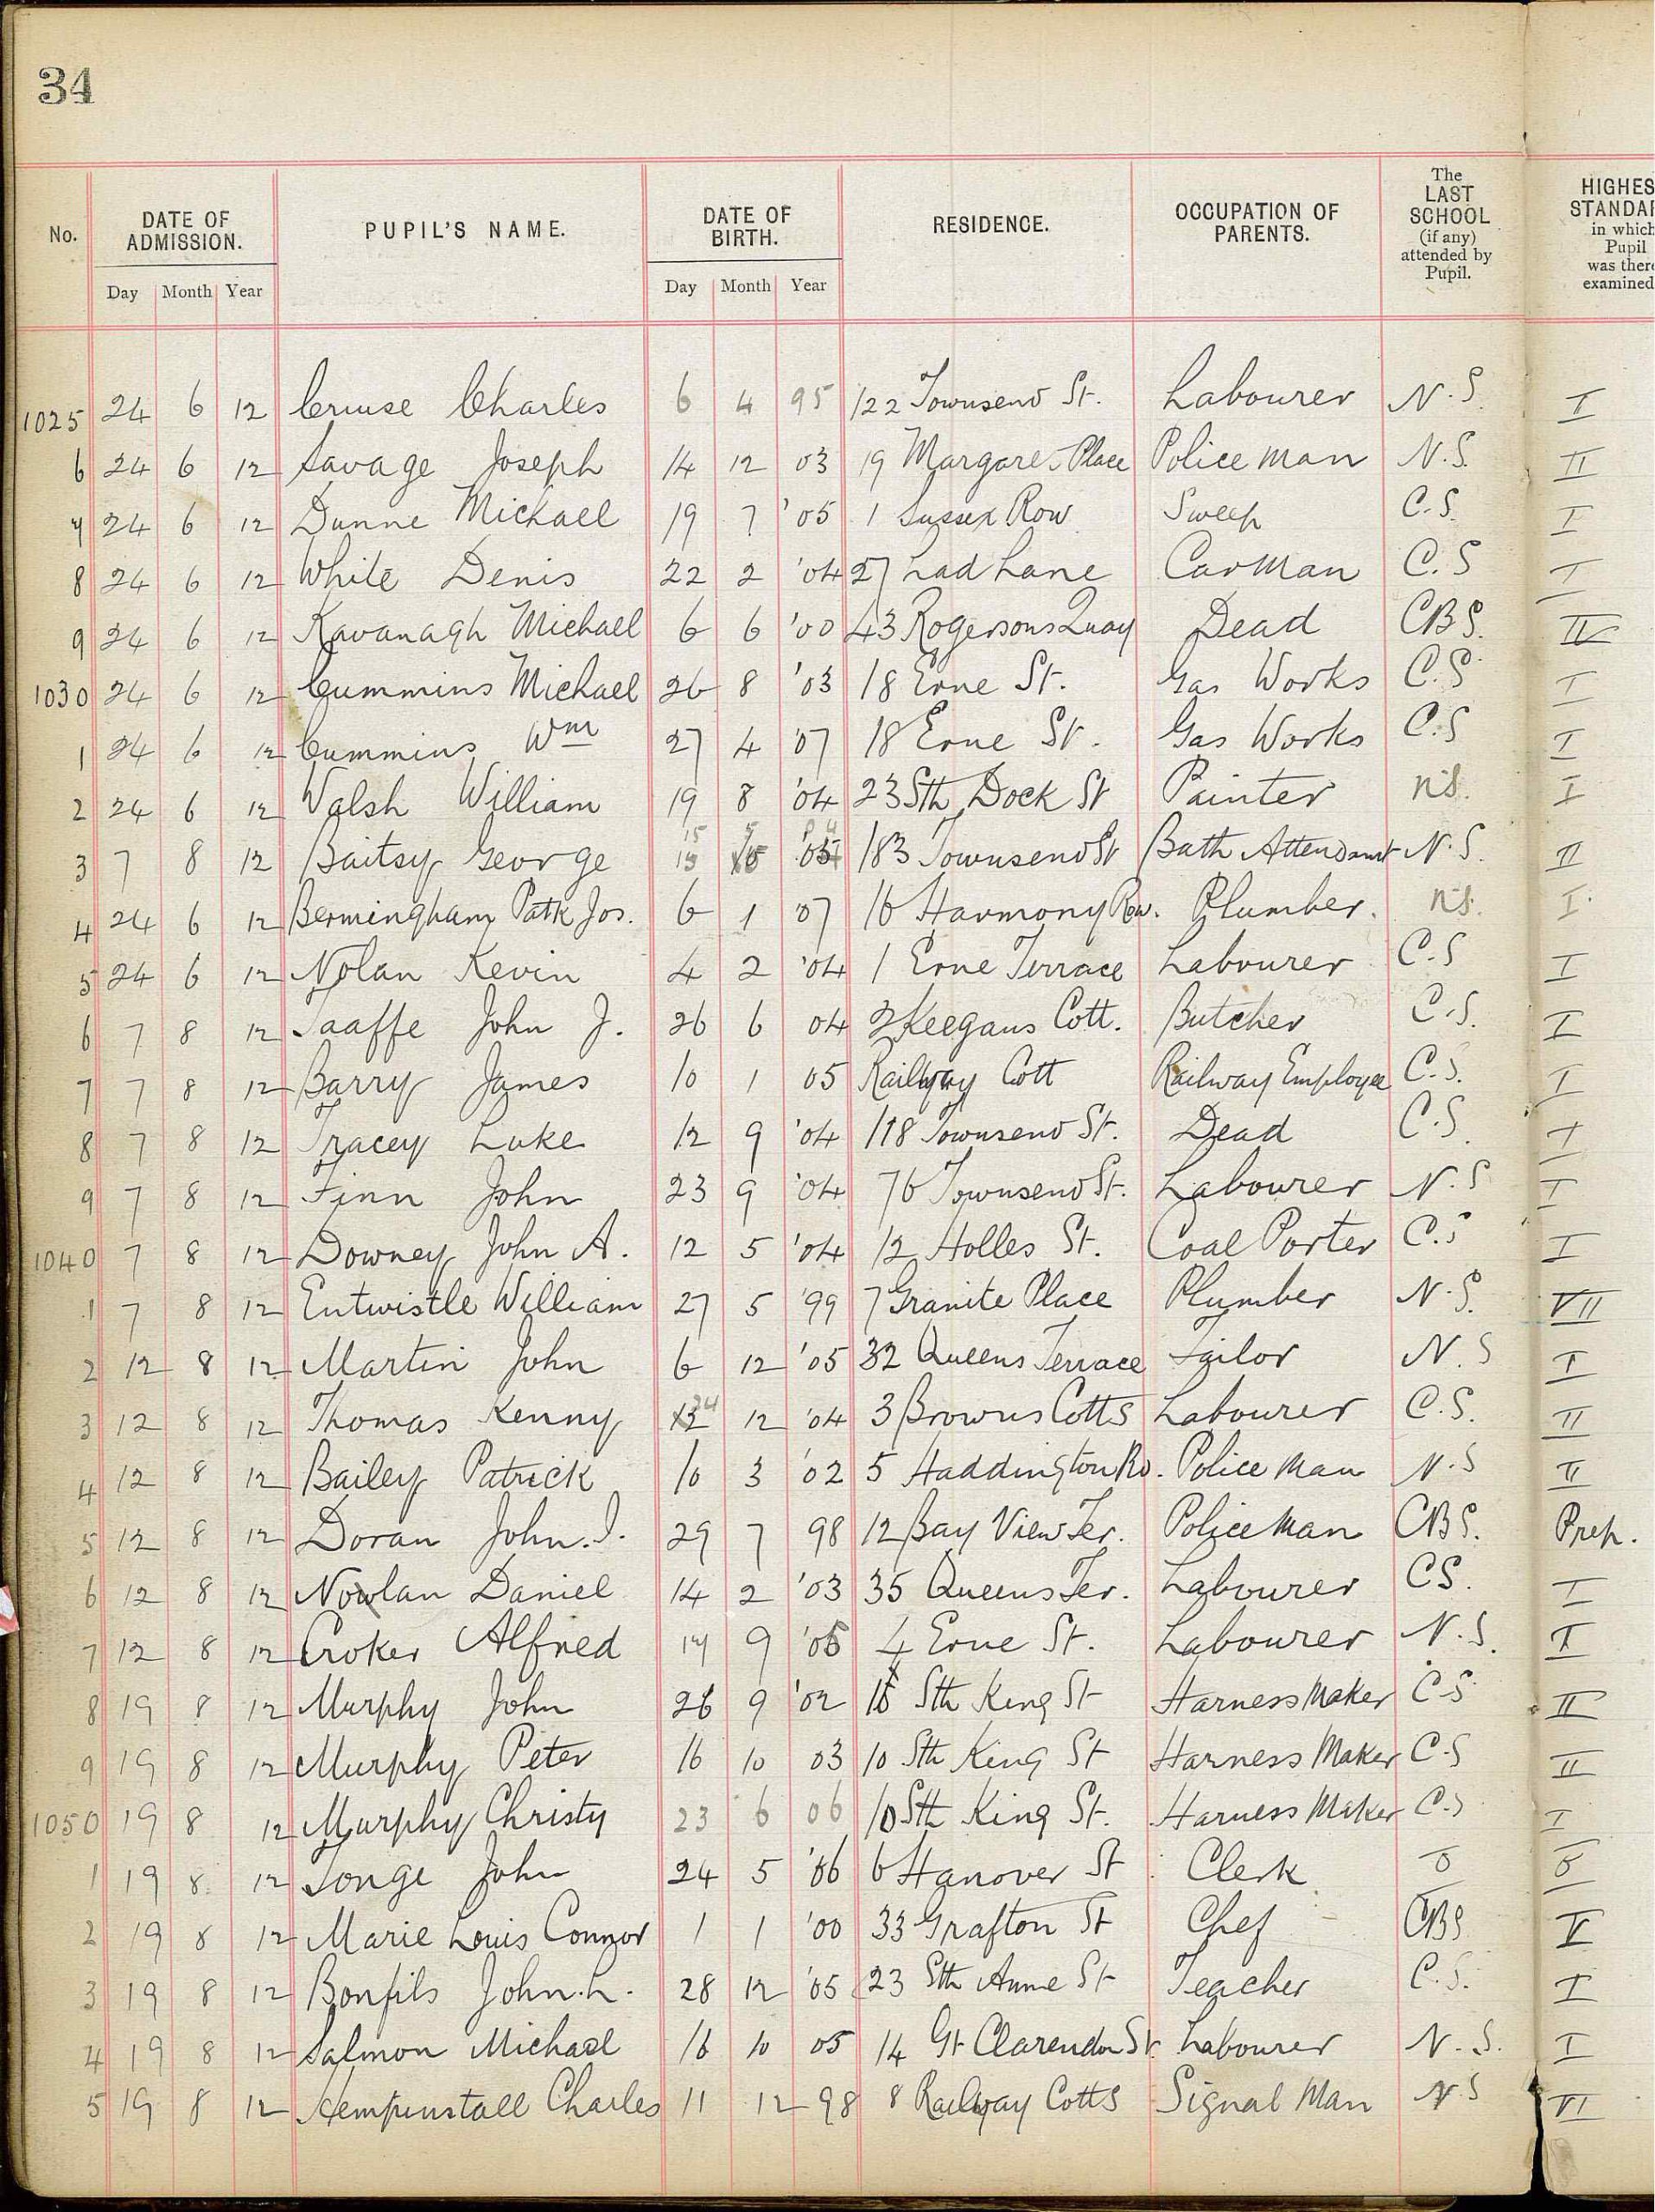 34
No. DATE OF ADMISSION. PUPIL'S NAME. DATE OF BIRTH. RESIDENCE. OCCUPATION OF PARENTS. The LAST SCHOOL (if any) attended by Pupil. HIGHES STANDAR in which Pupil was there examined
Day Month Year Day Month Year
1025 24 6 12 Cruise Charles 6 4 95 122 Townsend St. Labourer N.S. I
6 24 6 12 Savage Joseph 14 12 03 19 Margaret Place Police man N.S. II
7 24 6 12 Dunne Michael 19 7 '05 1 Sussex Row Sweep C.S. I
8 24 6 12 White Denis 22 2 '04 27 Lad Lane Carman C.S I
9 24 6 12 Kavanagh Michael 6 6 '00 43 Rogersons Quay Dead CBS. IV
1030 24 6 12 Cummins Michael 26 8 '03 18 Erne St. Gas Works C.S I
1 24 6 12 Cummins Wm 27 4 '07 18 Erne St. Gas Works C.S I
2 24 6 12 Walsh William 19 8 '04 23 Sth Dock St Painter N.S. I
3 7 8 12 Baitsy George 15 5 183 Townsend St Bath Attendant N.S. II
4 24 6 12 Bermingham Patk Jos. 6 1 '07 16 Harmony Row. Plumber. N.S. I
5 24 6 12 Nolan Kevin 4 2 '04 1 Erne Terrace Labourer C.S I
6 7 8 12 Taaffe John J. 26 6 04 2 Keegans Cott. Butcher C.S. I
7 7 8 12 Barry James 10 1 05 Railway Cott Railway Employee C.S. I
8 7 8 12 Tracey Luke 12 9 '04 118 Townsend St. Dead C.S. I
9 7 8 12 Finn John 23 9 '04 76 Townsend St. Labourer N.S I
1040 7 8 12 Downey John A. 12 5 '04 12 Holles St. Coal Porter C.S I
1 7 8 12 Entwistle William 27 5 '99 7 Granite Place Plumber N.S. VII
2 12 8 12 Martin John 6 12 '05 32 Queens Terrace Tailor N.S I
3 12 8 12 Thomas Kenny 24 12 '04 3 Browns Cotts Labourer C.S. II
4 12 8 12 Bailey Patrick 10 3 '02 5 Haddington Rd. Police man N.S II
5 12 8 12 Doran John.J. 29 7 98 12 Bay View Ter. Police man CBS. Prep.
6 12 8 12 Nowlan Daniel 14 2 '03 35 Queens Ter. Labourer CS. I
7 12 8 12 Croker Alfred 14 9 4 Erne St. Labourer N.S. I
8 19 8 12 Murphy John 26 9 '02 10 Sth King St Harness Maker C.S II
9 19 8 12 Murphy Peter 16 10 03 10 Sth King St Harness Maker C.S II
1050 19 8 12 Murphy Christy 23 6 06 10 Sth King St. Harness Maker C.S I
1 19 8 12 Tonge John 24 5 '06 6 Hanover St Clerk 0 0
2 19 8 12 Marie Louis Connor 1 1 '00 33 Grafton St Chef CBS V
3 19 8 12 Bonfils John.L. 28 12 '05 23 Sth Anne St Teacher C.S. I
4 19 8 12 Salmon Michael 16 10 05 14 Gt Clarendon St. Labourer N.S. I
5 19 8 12 Hempenstall Charles 11 12 98 8 Railway Cotts Signal Man N.S VI